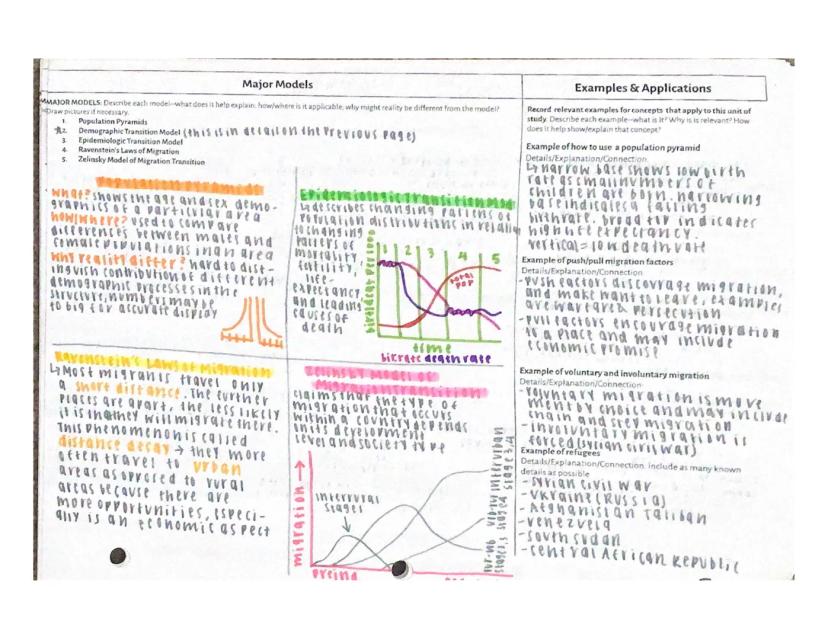 Major Models
MAJOR MODELS: Describe each model--what does it help explain; how/where is it applicable; why might reality be different from the model?
Draw pictures if necessary.
1. Population Pyramids
2. Demographic Transition Model (this is in detail on the previous page)
3. Epidemiologic Transition Model
4. Ravenstein's Laws of Migration
5. Zelinsky Model of Migration Transition
Population Pyramids
What? shows the age and sex demo-
graphics of a particular area
how/where? used to compare
differences between males and
female populations in an area
Why reality differ? hard to dist-
inguish contribution of different
demographic processes in the
structure, numbers may be
to big for accurate display
Epidemiologic Transition Mod
↳describes changing patterns of
population distributions in relation
to changing
patters of
mortality,
fertility,
life-
expectancy
and leading
causes of
death
1 2 3 4 5
total
pop
time
birthrate deathrate
Ravenstein's Laws of Migration
↳Most migranis travel only
a short distance. The further
places are apart, the less likely
it is that they will migrate there.
This phenomenon is called
distance decay → they more
often travel to urban
areas as opposed to rural
areas because there are
more opportunities, especi-
ally is an economic aspect
Zelinsky Model of
Migration Transition
claims that the type of
migration that occurs
within a country depends
on its development
level and society type
migration →
Intervural
stages
Examples & Applications
Record relevant examples for concepts that apply to this unit of
study. Describe each example--what is it? Why is is relevant? How
does it help show/explain that concept?
Example of how to use a population pyramid
Details/Explanation/Connection
↳narrow base shows low birth
rate as small numbers of
children are born. narrowing
base indicates a falling
birthrate. broad top indicates
high life expectancy.
vertical = low death rate
Example of push/pull migration factors
Details/Explanation/Connection
-push factors discourage migration,
and make want to leave, examples
are warfare & persecution
-pull factors encourage migration
to a place and may include
economic promise
Example of voluntary and involuntary migration
Details/Explanation/Connection
-voluntary migration is move
ment by choice and may include
chain and step migration
-involuntary migration is
forced (syrian civil war)
Example of refugees
Details/Explanation/Connection, include as many known
details as possible
-syrian civil war
-Ukraine (Russia)
-Afghanistan Taliban
-venezuela
-south sudan
-central African Republic